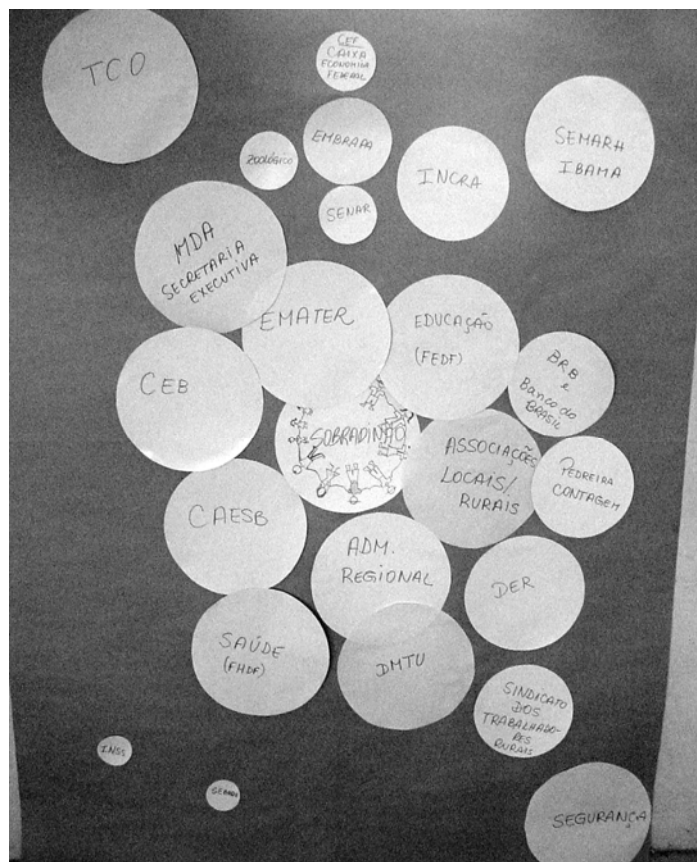 TCO
CEF
CAIXA
ECONOMICA
FEDERAL
EMBRAPA
ZOOLÓGICO
SENAR
INCRA
SEMARH
IBAMA
MDA
SECRETARIA
EXECUTIVA
EMATER
EDUCAÇÃO
(FEDF)
BRB
e
Banco do
BRASIL
CEB
SOBRADINHO
ASSOCIAÇÕES
LOCAIS/
RURAIS
PEDREIRA
CONTAGEM
CAESB
ADM.
REGIONAL
DER
SAÚDE
(FHDF)
DMTU
SINDICATO
DOS
TRABALHADO-
RES
RURAIS
INSS
SEGURANÇA